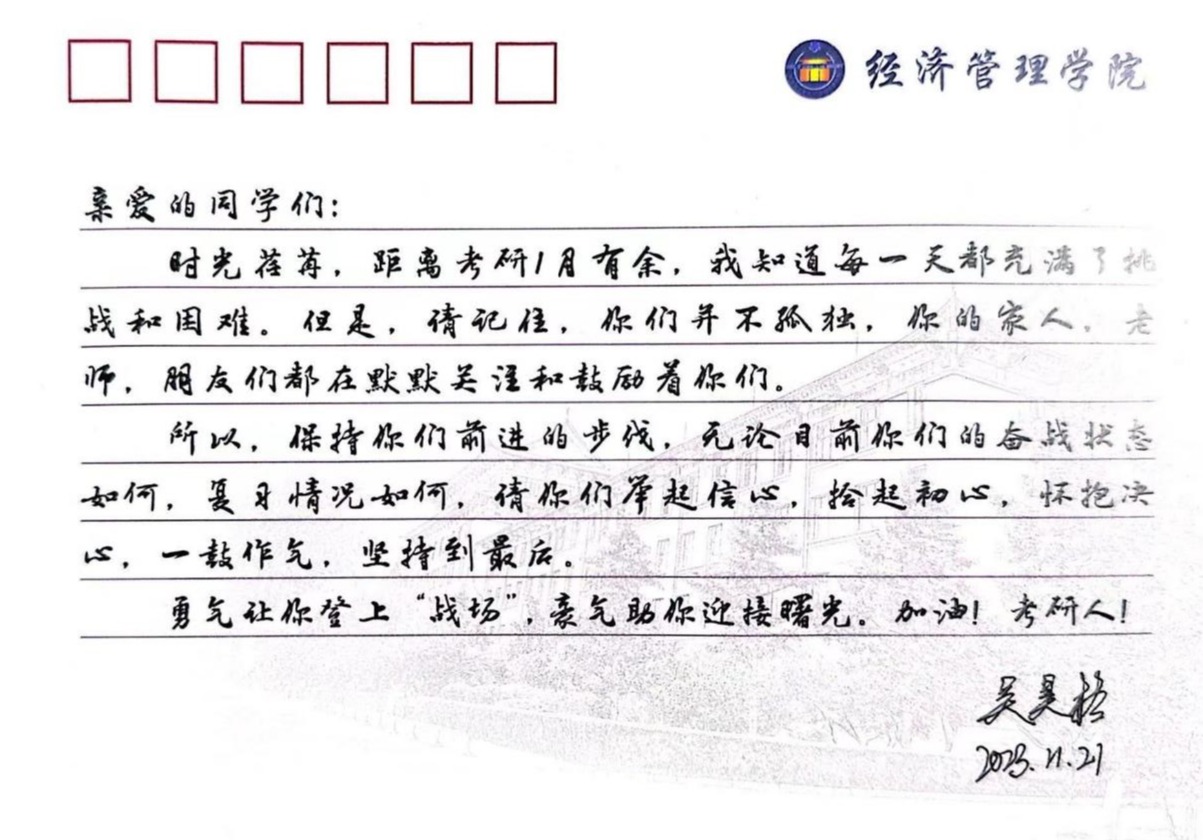 经济管理学院
亲爱的同学们：
时光荏苒，距离考研1月有余，我知道每一天都充满了挑
战和困难。但是，请记住，你们并不孤独，你的家人，老
师，朋友们都在默默关注和鼓励着你们。
所以，保持你们前进的步伐，无论目前你们的奋战状态
如何，复习情况如何，请你们举起信心，拾起初心，怀抱决
心，一鼓作气，坚持到最后。
勇气让你登上“战场”，豪气助你迎接曙光。加油！考研人！
吴昊
2023.11.21